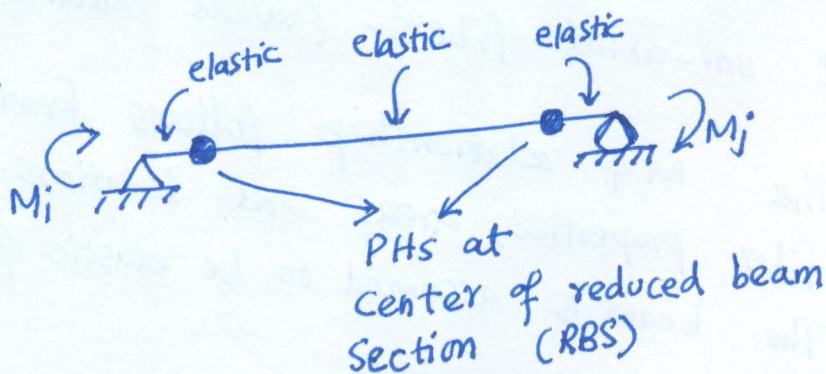 elastic
elastic
elastic
Mi
Mj
PHs at
center of reduced beam
section (RBS)